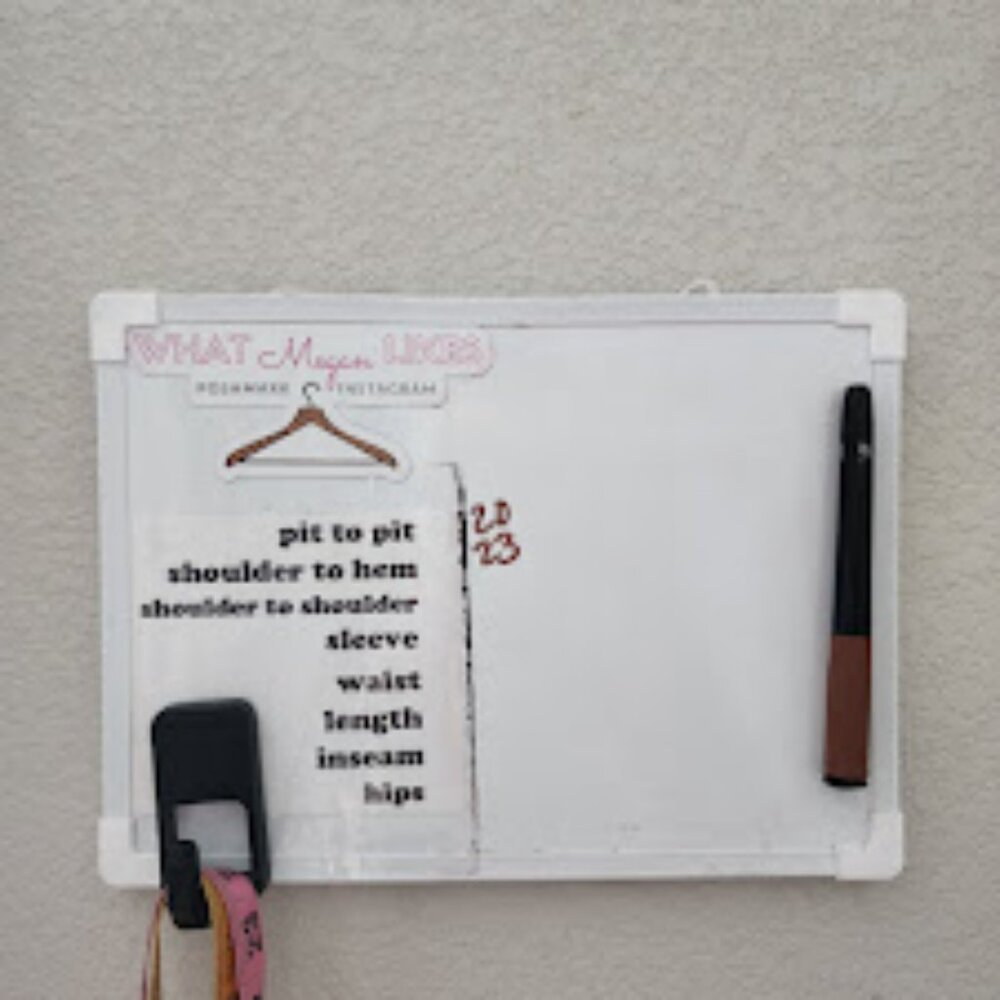 WHAT Megan LIKES
POSHMARK INSTAGRAM
pit to pit 20
shoulder to hem 23
shoulder to shoulder
sleeve
waist
length
inseam
hips